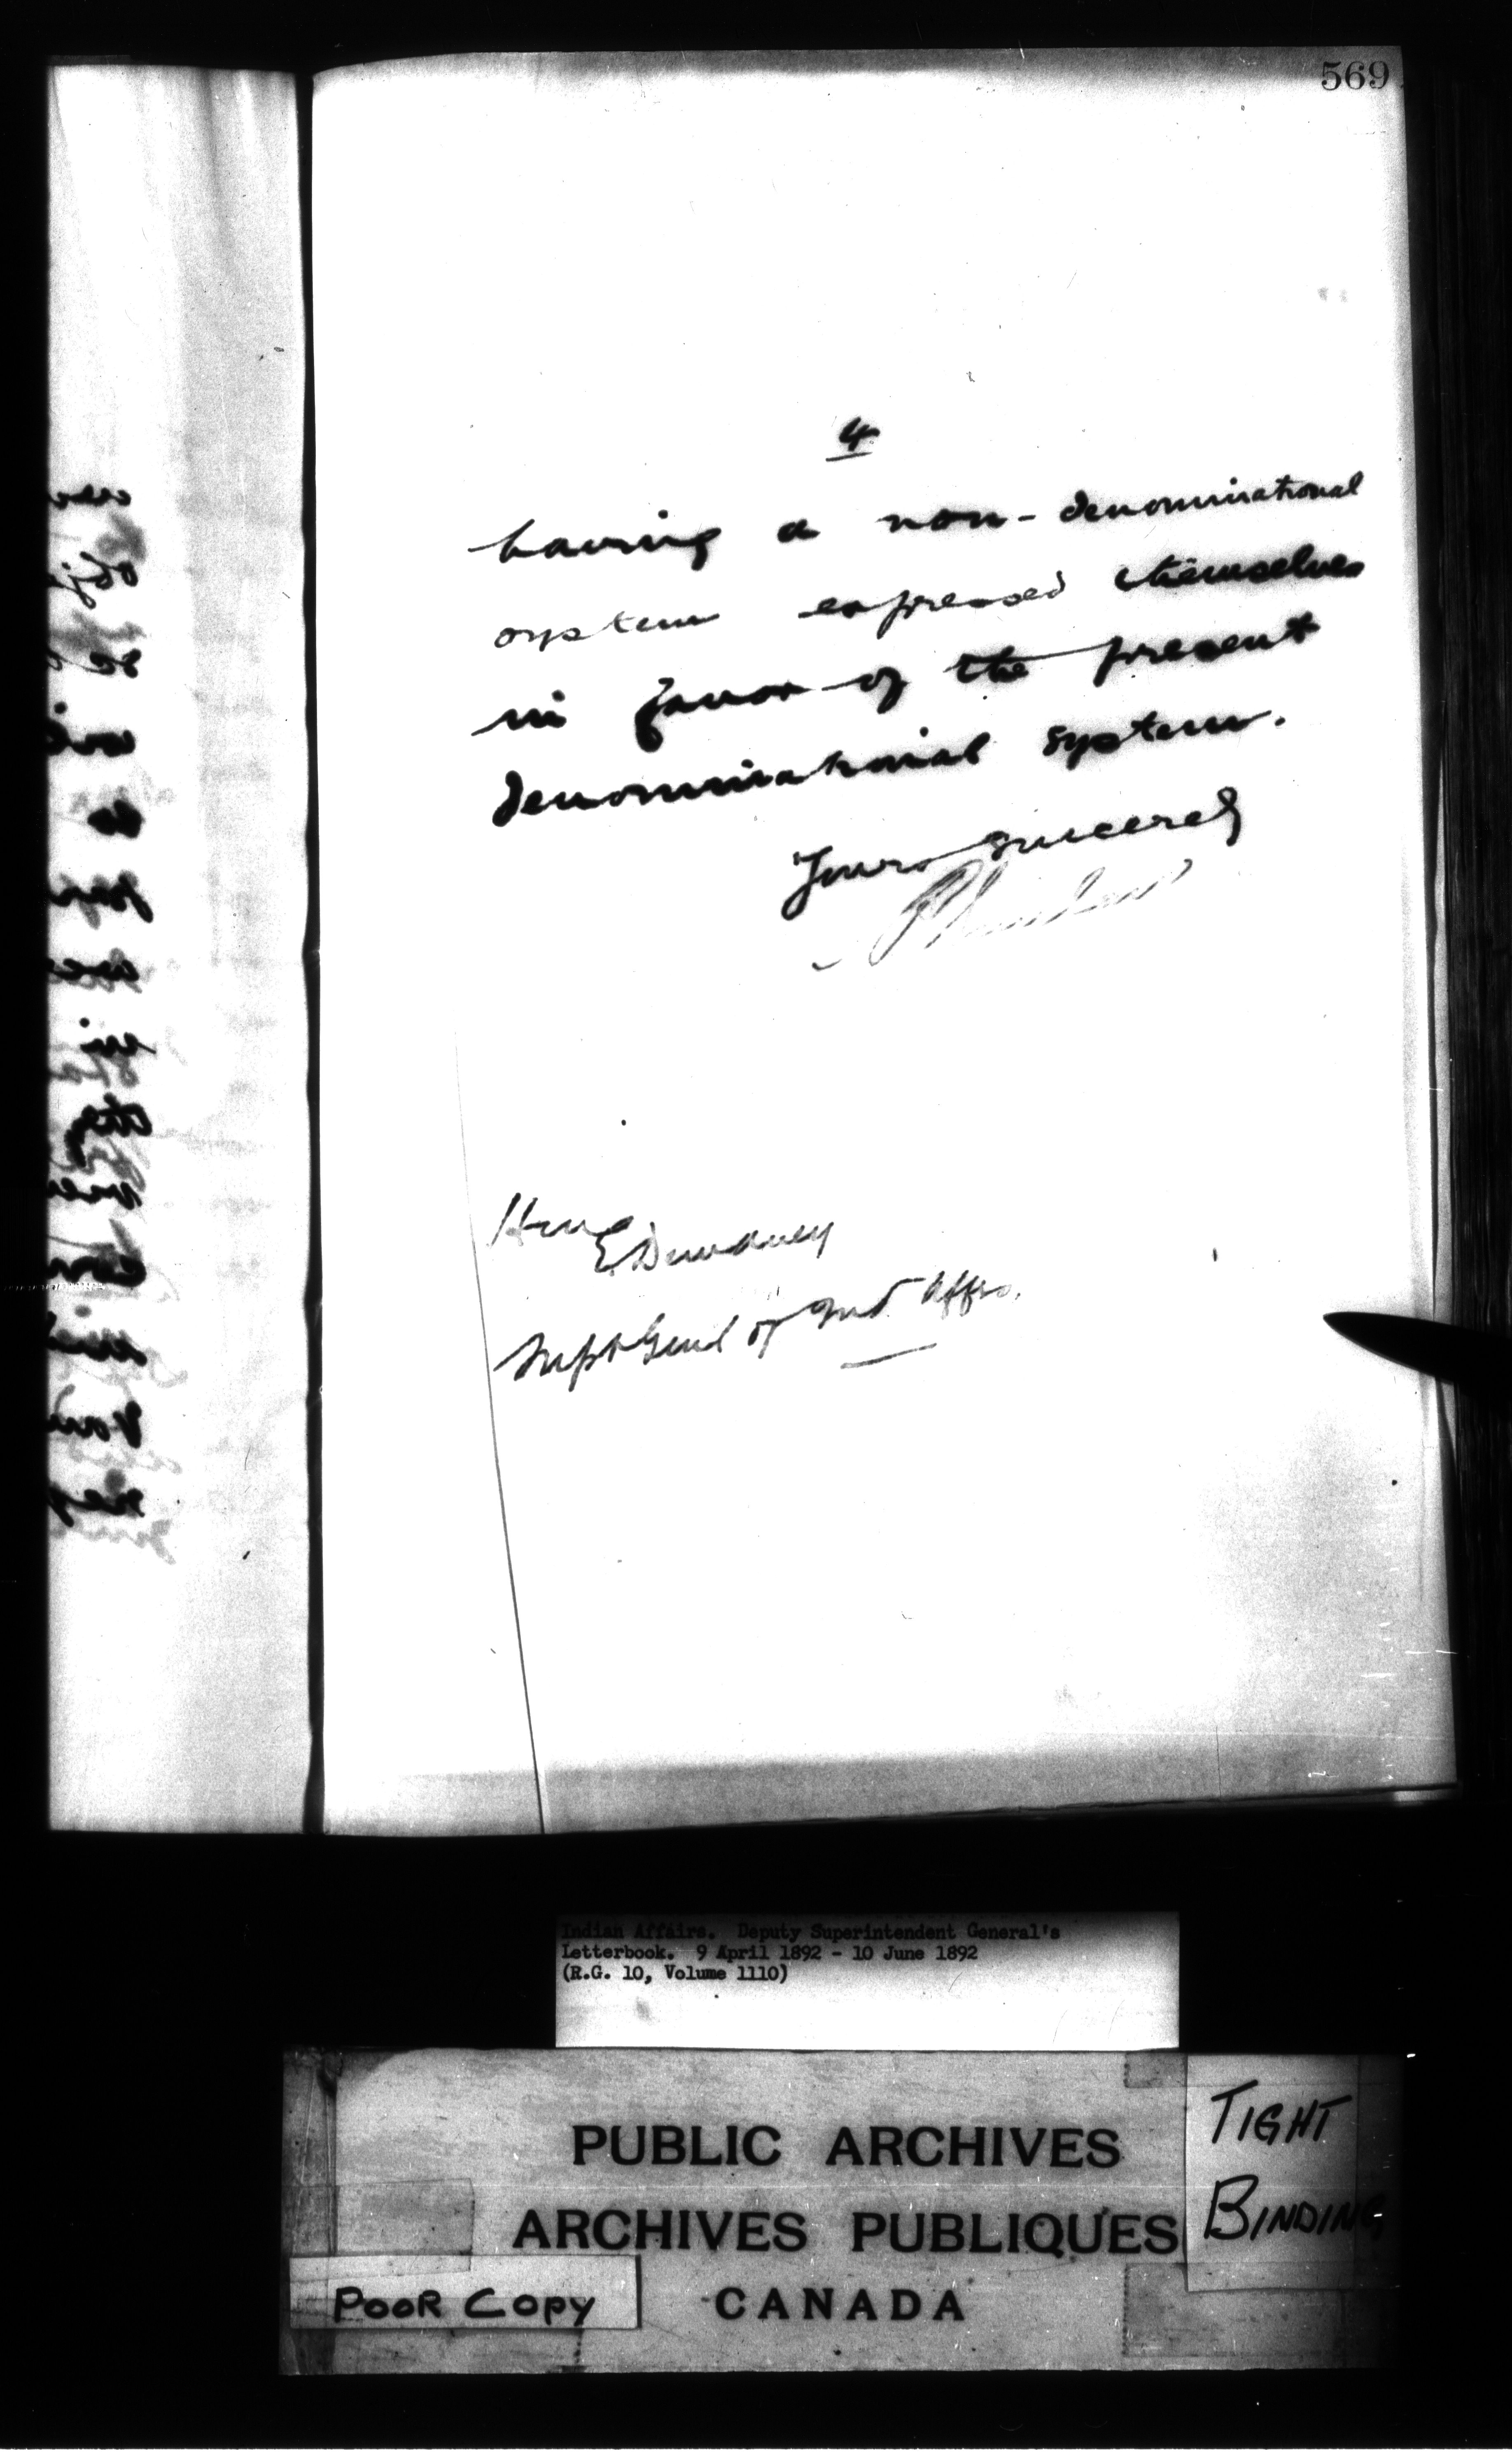 569
4
having a non-denominational
system expressed themselves
in favor of the present
denominational system.
Yours sincerely
Hon
E. Dewdney
Supt Genl of Ind. Affrs.
Indian Affairs. Deputy Superintendent General's
Letterbook. 9 April 1892 - 10 June 1892
(R.G. 10, Volume 1110)
PUBLIC ARCHIVES
ARCHIVES PUBLIQUES
CANADA
TIGHT
BINDING
POOR COPY